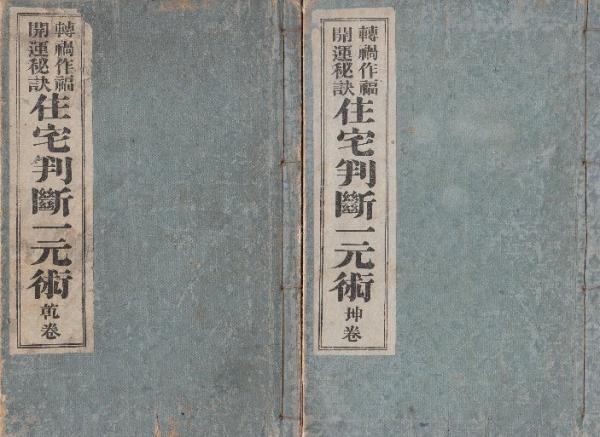 轉禍作福
開運秘訣
住宅判斷一元術
乾卷
轉禍作福
開運秘訣
住宅判斷一元術
坤卷